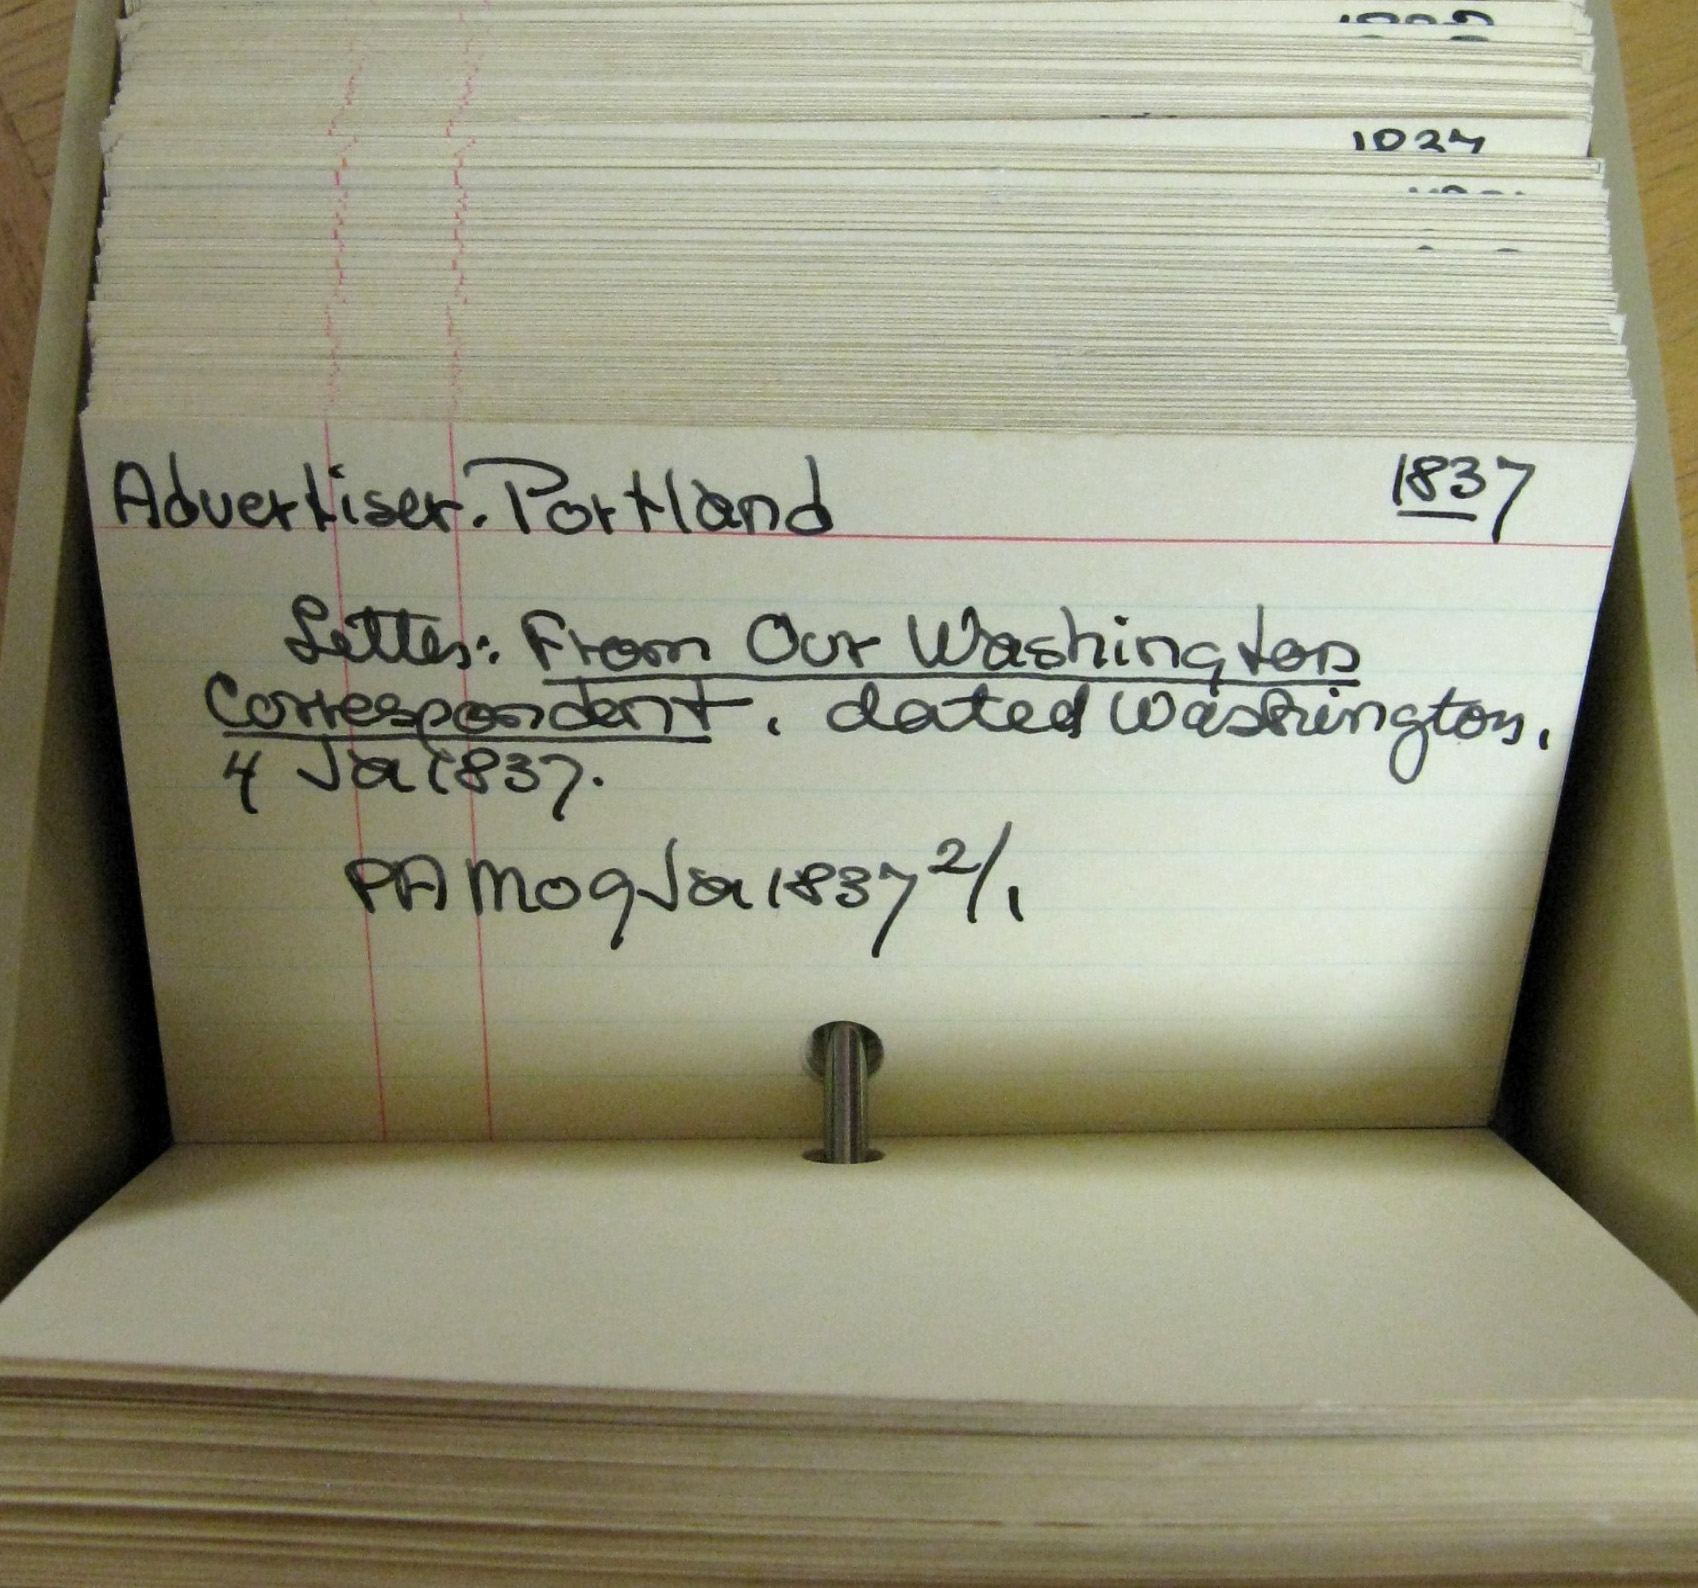 1027
Advertiser. Portland 1837
Letter: From Our Washington
Correspondent, dated Washington,
4 Ja 1837.
PA Mo 9 Ja 1837 2/1